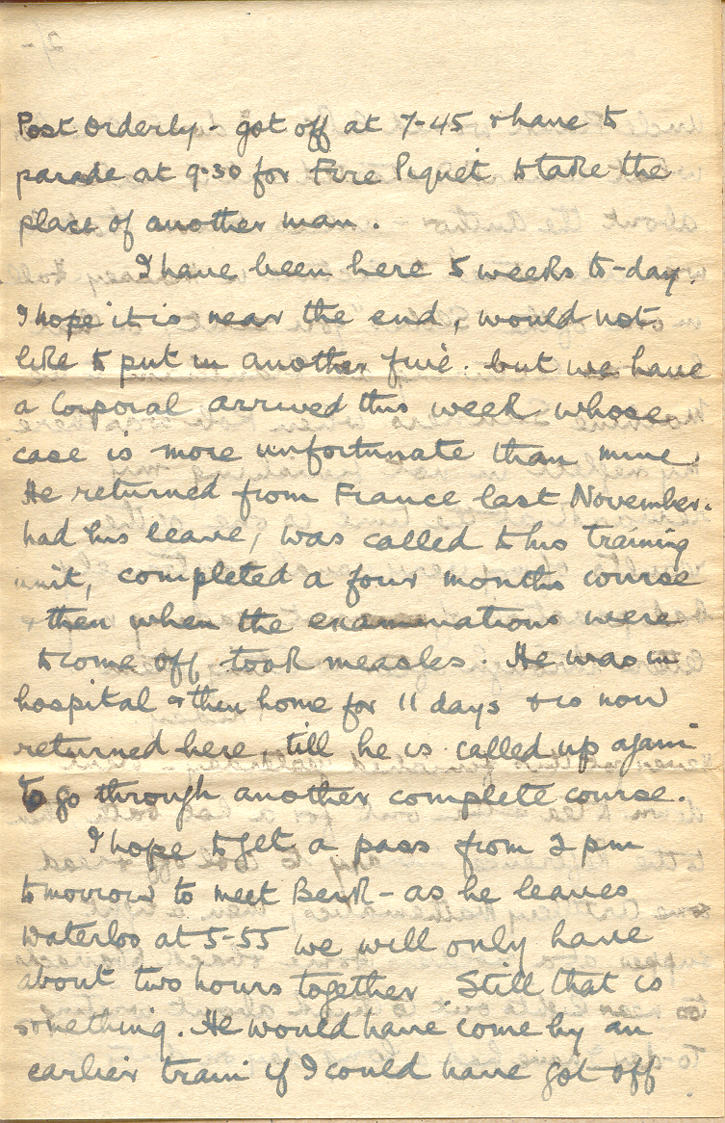 Post Orderly - got off at 7-45 & have to
parade at 9.30 for Fire Piquet to take the
place of another man.
I have been here 5 weeks to-day.
I hope it is near the end, would not
like to put in another five. but we have
a Corporal arrived this week whose
case is more unfortunate than mine.
He returned from France last November.
had his leave, was called to his training
unit, completed a four months course
& then when the examinations were
to come off took measles. He was in
hospital & then home for 11 days & is now
returned here, till he is called up again
to go through another complete course.
I hope to get a pass from 2 pm
tomorrow to meet - as he leaves
Waterloo at 5-55 we will only have
about two hours together. Still that is
something. He would have come by an
earlier train if I could have got off